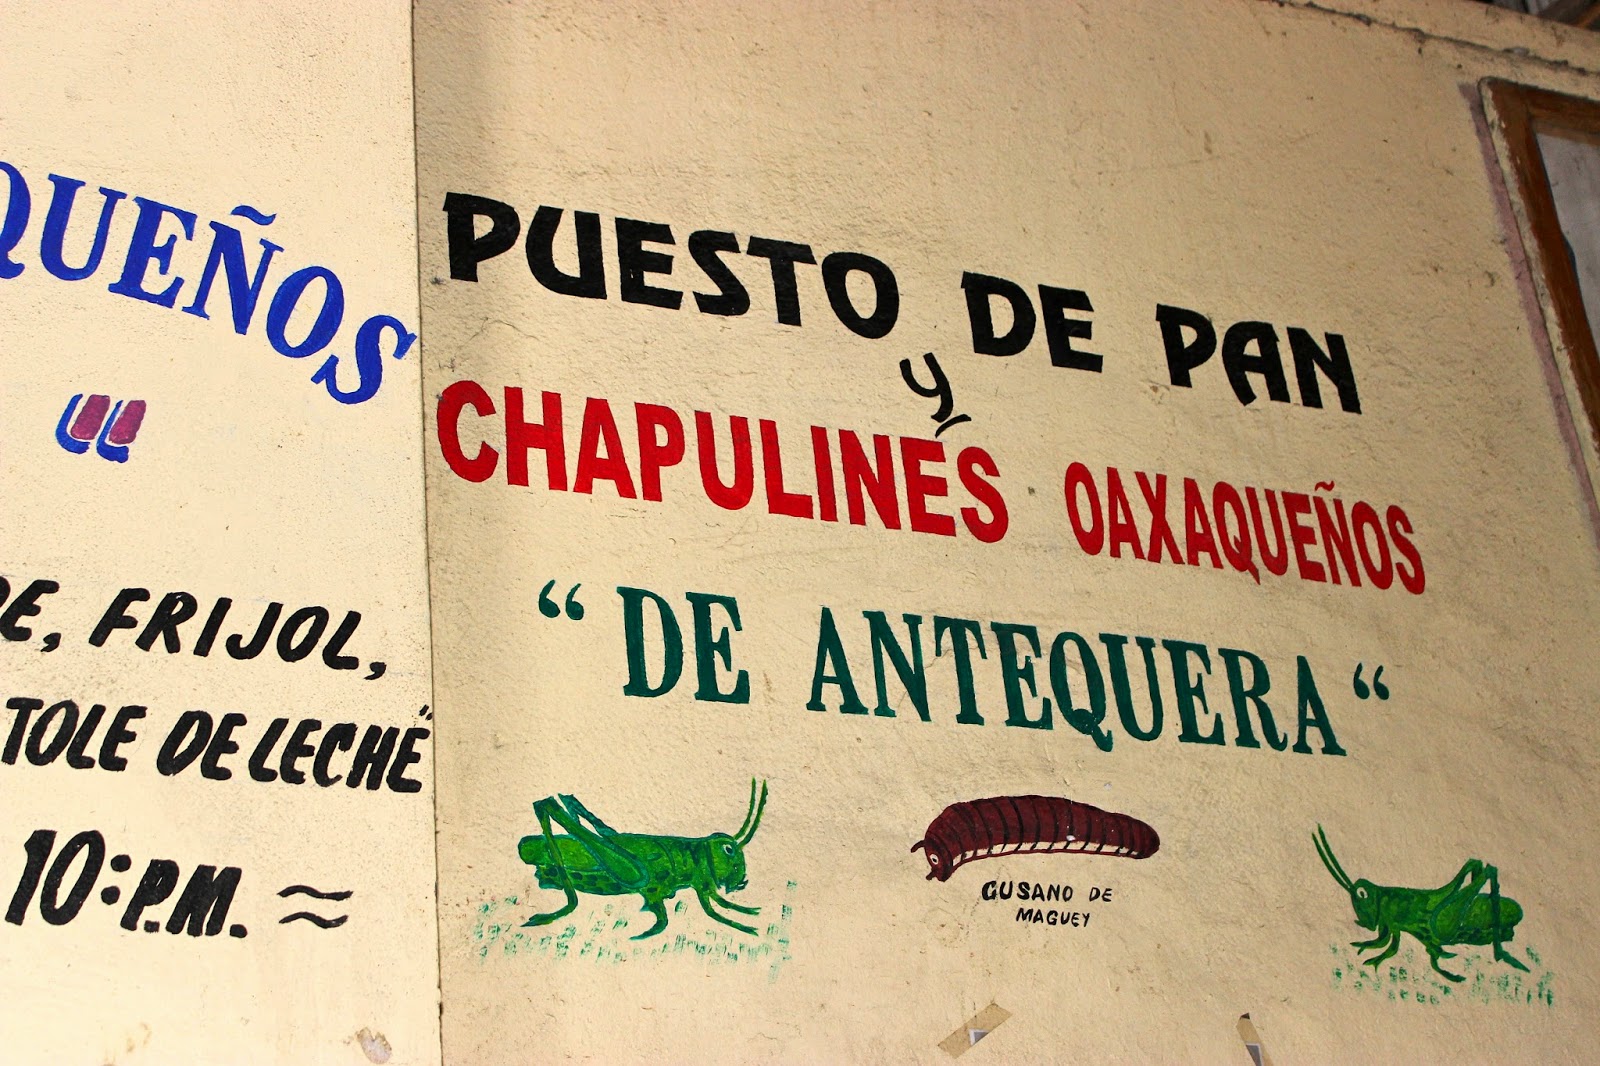 QUEÑOS
“
E, FRIJOL,
TOLE DE LECHE"
10:P.M. ≈
PUESTO DE PAN
y
CHAPULINES OAXAQUEÑOS
“DE ANTEQUERA“
GUSANO DE
MAGUEY